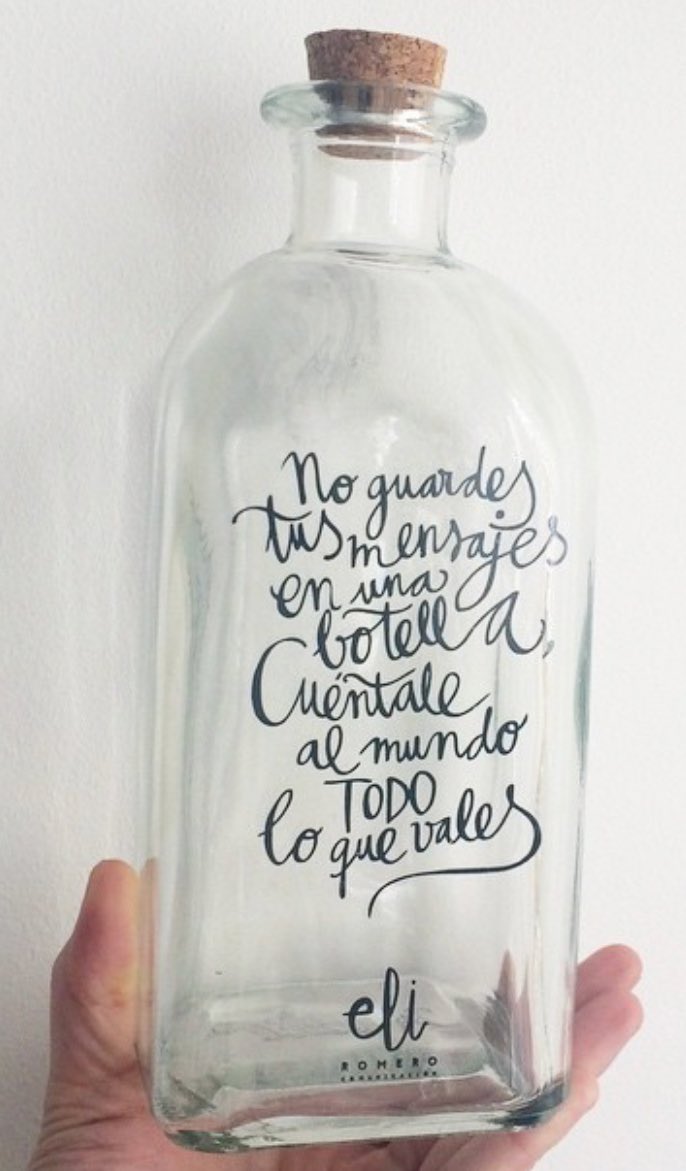 No guardes
tus mensajes
en una
botella,
Cuéntale
al mundo
TODO
lo que vales
eli
ROMERO
COMUNICACIÓN